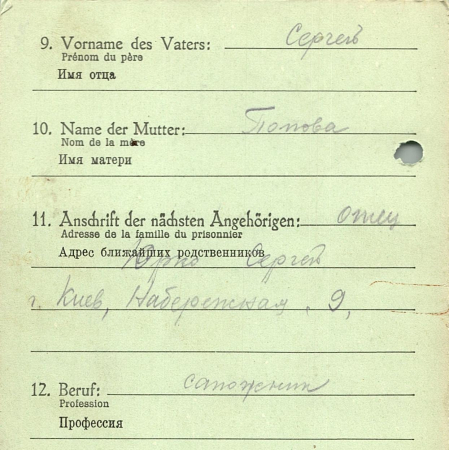 9. Vorname des Vaters: Сергей
Prénom du père
Имя отца
10. Name der Mutter: Попова
Nom de la mère
Имя матери
11. Anschrift der nächsten Angehörigen: отец
Adresse de la famille du prisonnier
Адрес ближайших родственников
Сергей
г. Киев, Набережная . 9,
12. Beruf: сапожник
Profession
Профессия